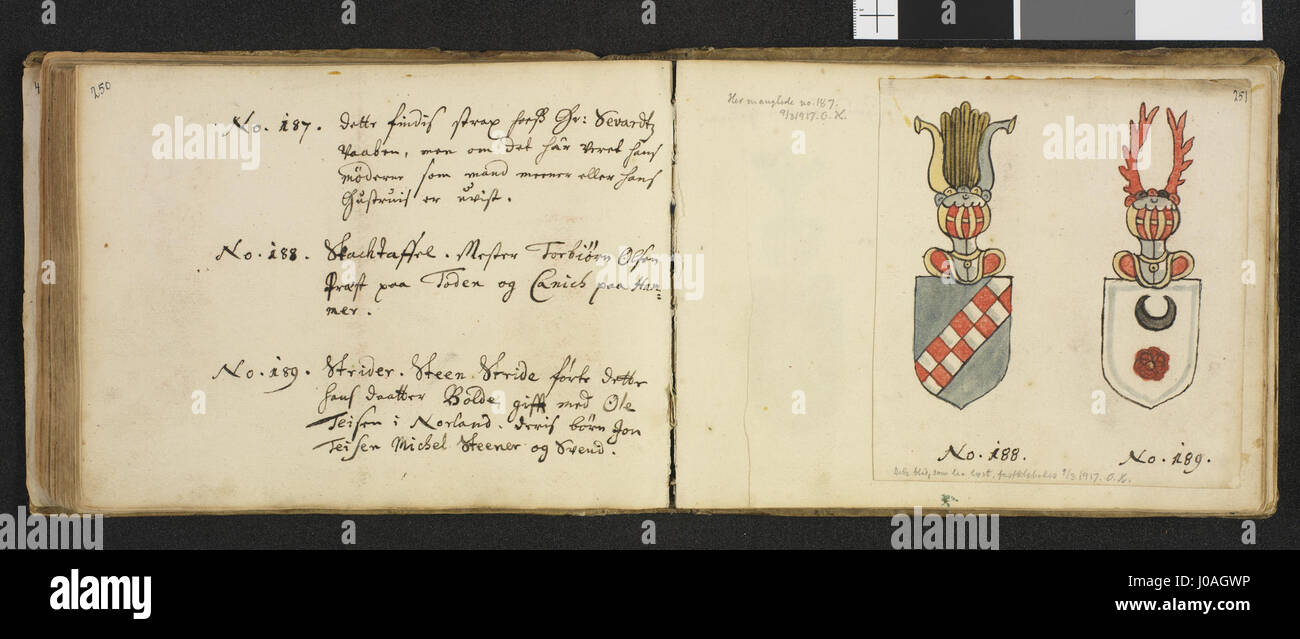 250
No. 187. dette findis strax hoss Hr: Sevardtz
Vaaben, men om det hår veret hans
möderne som mand meener eller hans
Hustruis er uvist.
No. 188. Skachtaffel. Mester Torbiörn Olsen
Præst paa Toden og Canich paa Ham=
mer.
No. 189. Strider. Steen Stride förte dette
hans daatter Bolde gifft med Ole
Teisen i Norland. deris börn Jon
Teisen Michel Steener og Svend.
Her manglede no. 187.
9/3 1917. O. K.
251
No. 188. No. 189.
Dette blad, som laa løst, fastklæbedes 9/3 1917. O. K.
alamy
Image ID: J0AGWP
www.alamy.com